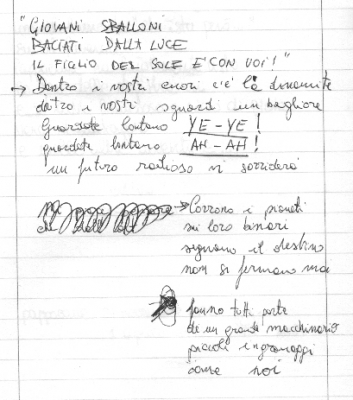 "GIOVANI SBALLONI
BACIATI DALLA LUCE
IL FIGLIO DEL SOLE È CON VOI!"
→ Dentro i vostri cuori c'è la dinamite
dentro i vostri sguardi un bagliore
Guardate lontano YE-YE!
guardate lontano AH-AH!
un futuro radioso vi sorriderà
→ Corrono i pianeti
sui loro binari
segnano il destino
non si fermano mai
fanno tutti parte
di un grande macchinario
piccoli ingranaggi
come noi